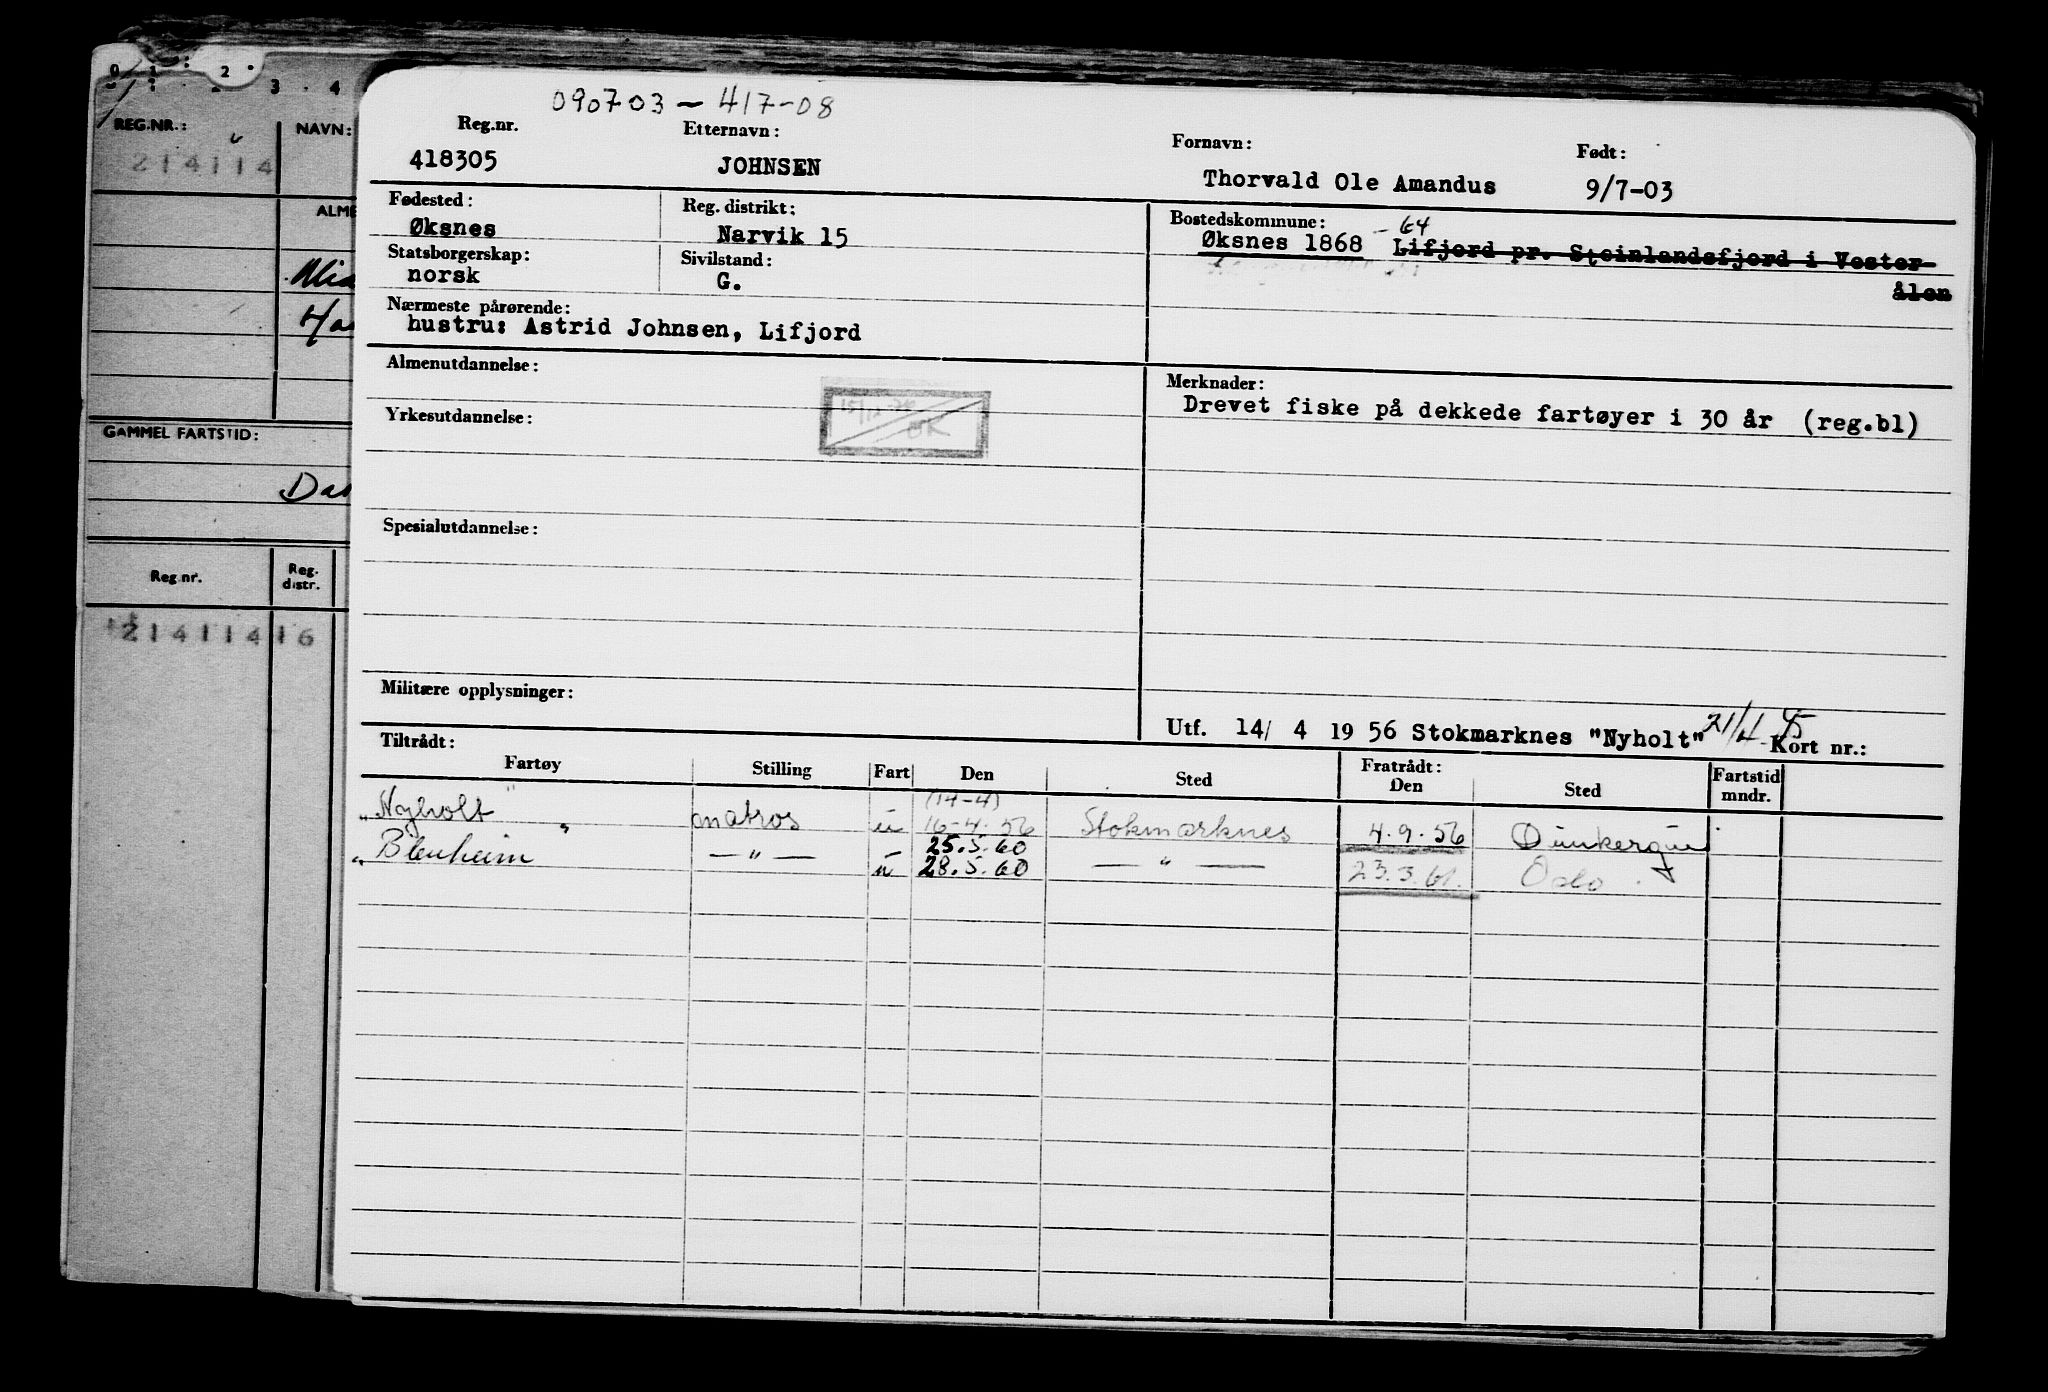 0 1 2 3 4
REG.NR.: NAVN:
214114
ALME
GAMMEL FARTSTID:
Reg.nr. Reg. distr.
214114 16
090703 - 417-08
Reg.nr. Etternavn: Fornavn: Født:
418305 JOHNSEN Thorvald Ole Amandus 9/7-03
Fødested: Reg. distrikt: Bostedskommune: - 64
Øksnes Narvik 15 Øksnes 1868 Lifjord pr. Steinlandsfjord i Vester-
ålen
Statsborgerskap: Sivilstand:
norsk G.
Nærmeste pårørende:
hustru: Astrid Johnsen, Lifjord
Almenutdannelse: Merknader:
Drevet fiske på dekkede fartøyer i 30 år (reg.bl)
Yrkesutdannelse:
OK
Spesialutdannelse:
Militære opplysninger:
Utf. 14/ 4 19 56 Stokmarknes "Nyholt" 21/4 Kort nr.:
Tiltrådt: Fratrådt:
Fartøy Stilling Fart Den Sted Den Sted Fartstid mndr.
(14-4)
"Nyholt" matros u 16-4.56 Stokmarknes 4.9.56 Dunkerque
25.5.60
"Blenheim" — " — u 28.5.60 — " — 23.3.61. Oslo